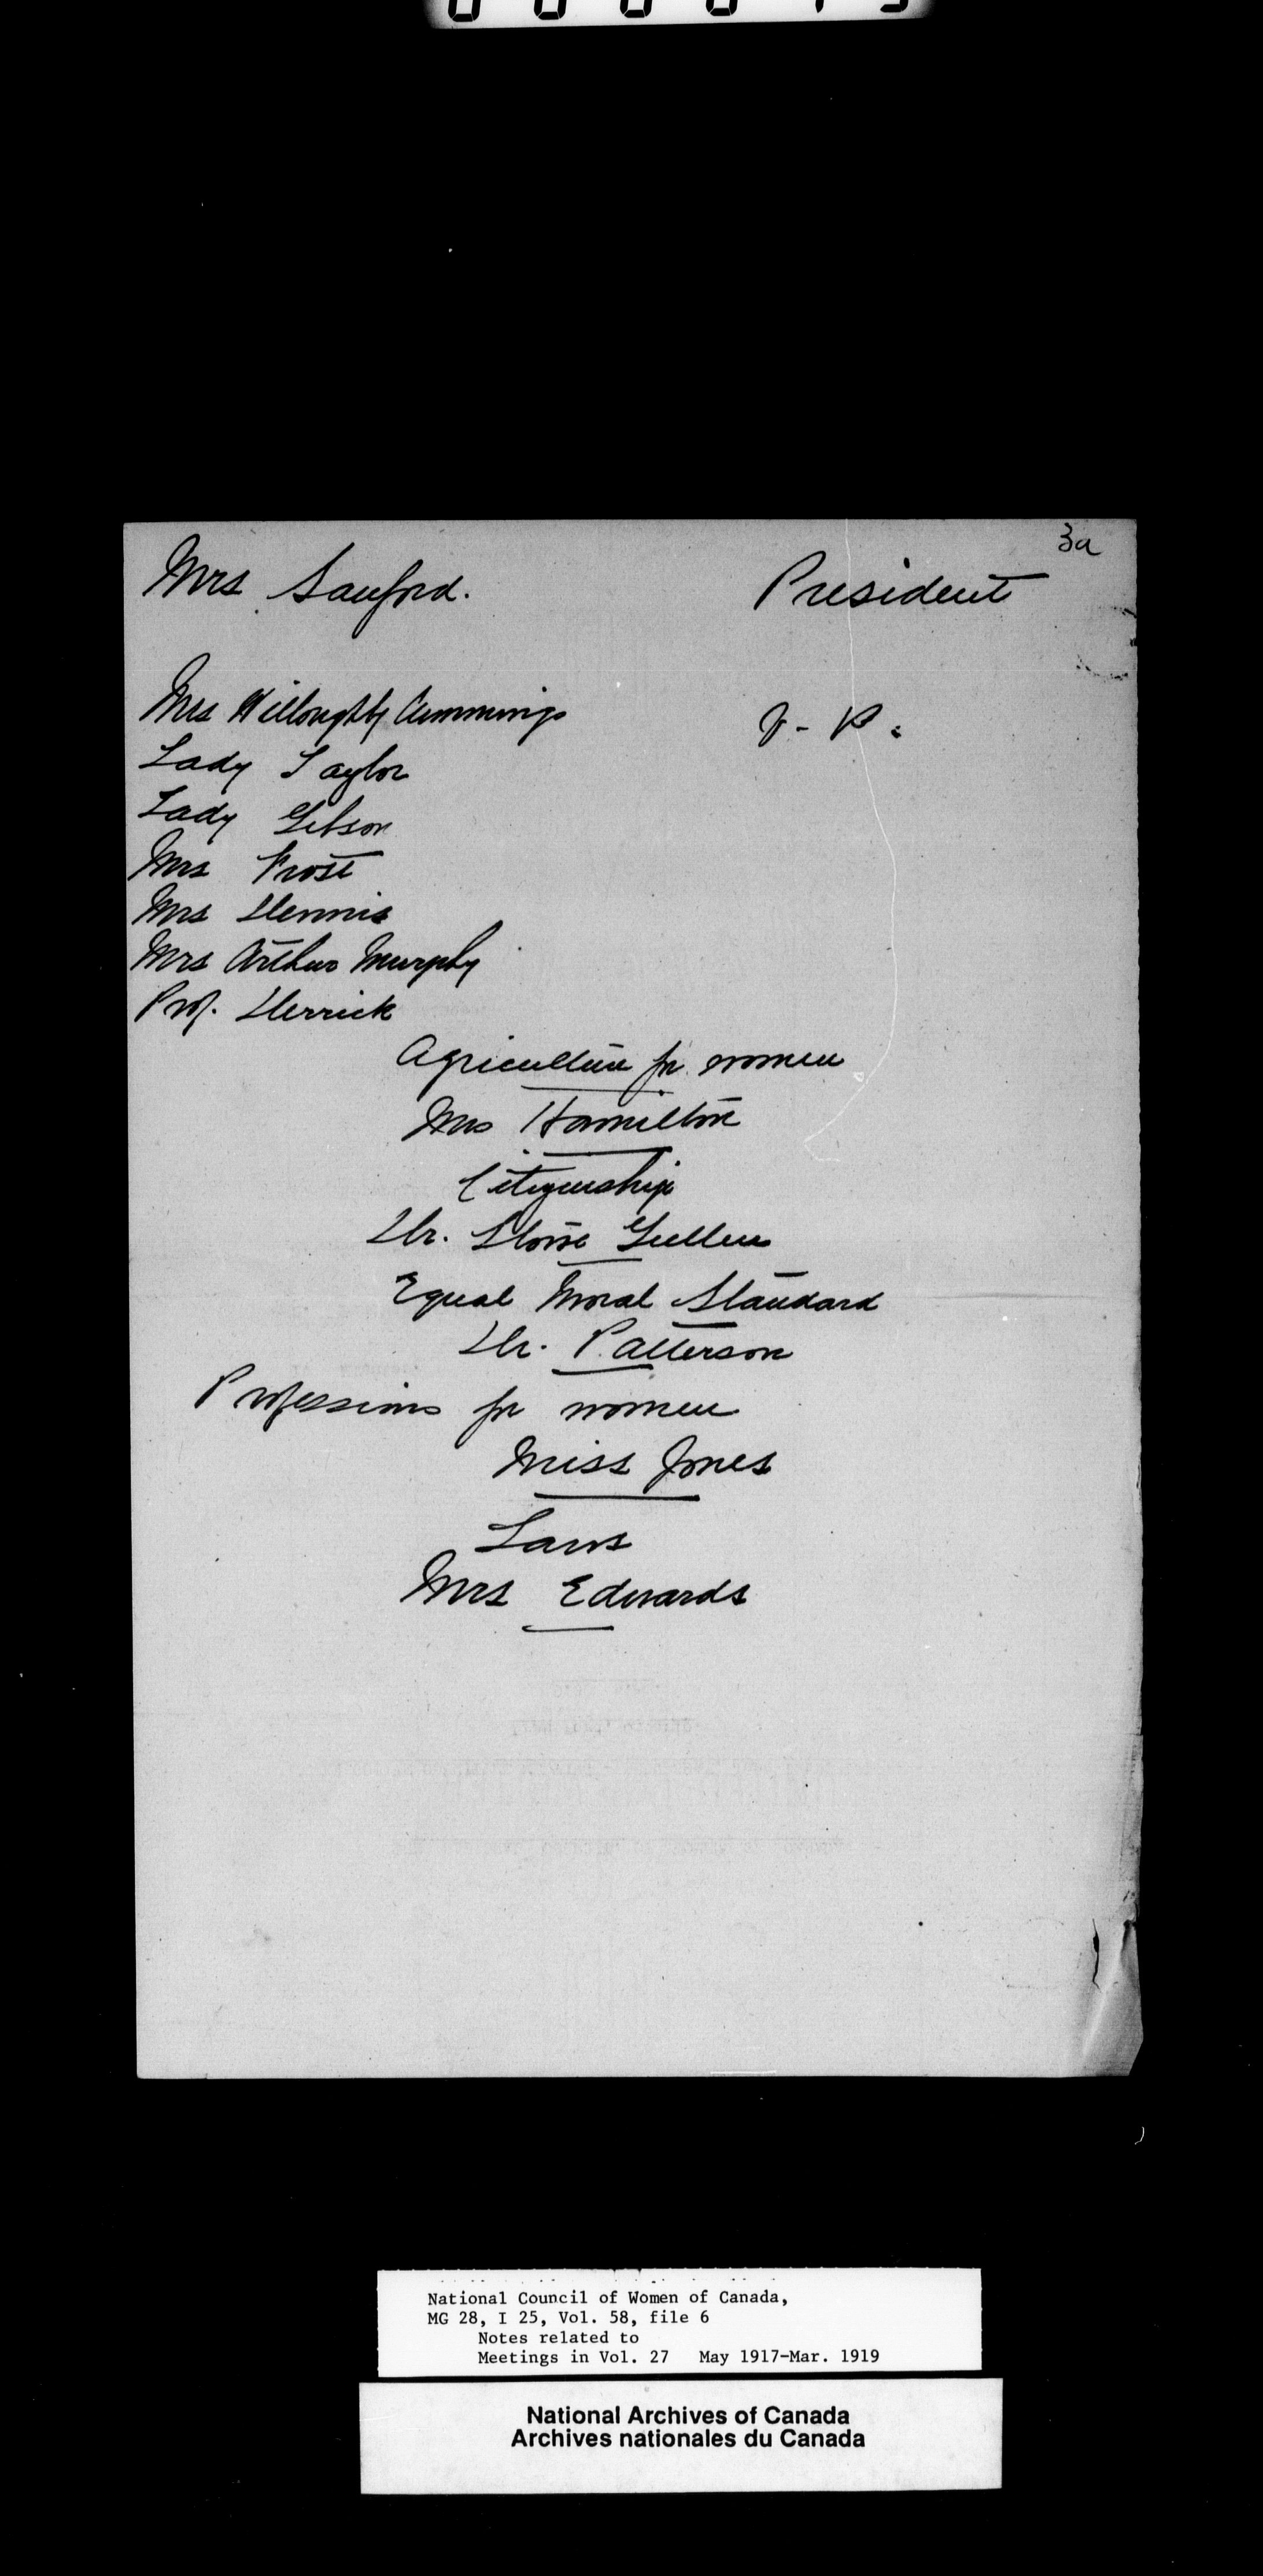 3a
Mrs Sanford. President
Mrs Willoughby Cummings V-P.
Lady Taylor
Lady Gibson
Mrs Frost
Mrs Dennis
Mrs Arthur Murphy
Prof. Derrick
Agriculture for women
Mrs Hamilton
Citizenship
Dr. Stowe Gullen
Equal Moral Standard
Dr. Patterson
Professions for women
Miss Jones
Laws
Mrs Edwards
National Council of Women of Canada,
MG 28, I 25, Vol. 58, file 6
Notes related to
Meetings in Vol. 27 May 1917-Mar. 1919
National Archives of Canada
Archives nationales du Canada